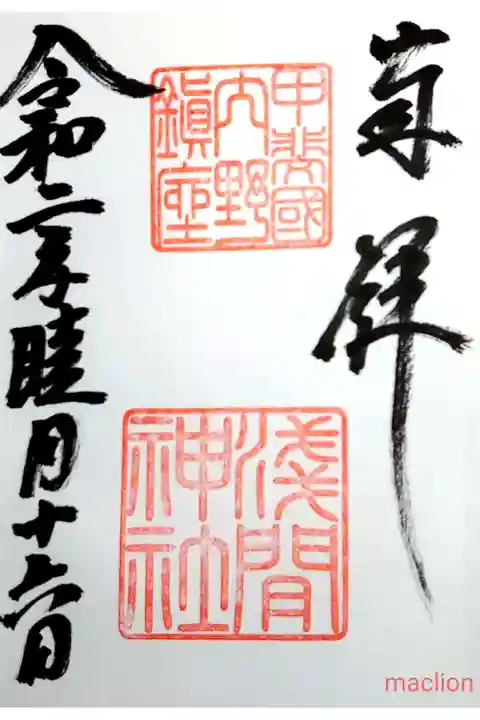 奉拝
甲斐國
大野
鎮座
浅間
神社
令和二年睦月十六日
maclion